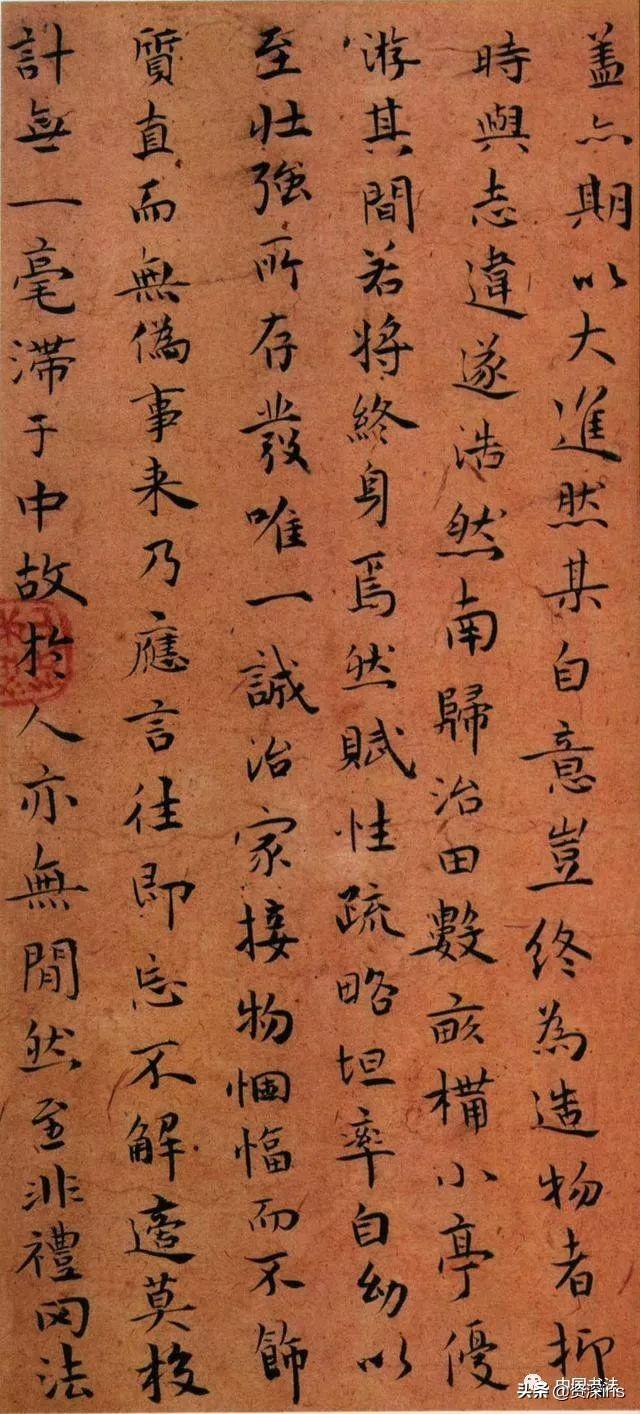 盖亦期以大進然某自意豈終為造物者抑
時與志違遂浩然南歸治田數畝構小亭優
游其間若將終身焉然賦性疏略坦率自幼以
至壯強所存發唯一誠治家接物悃愊而不飾
質直而無偽事来乃應言往即忘不解邉莫校
計無一毫滞于中故於人亦無閒然至非禮罔法
中国书法
头条@资深ins